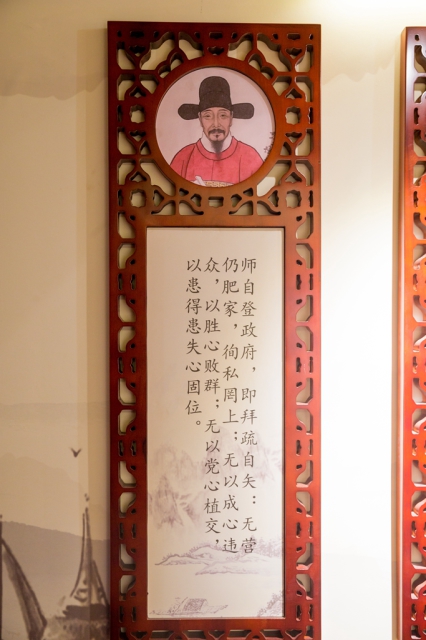 师自登政府，即拜疏自矢：无营
仍肥家，徇私罔上；无以成心违
众，以胜心败群；无以党心植交，
以患得患失心固位。